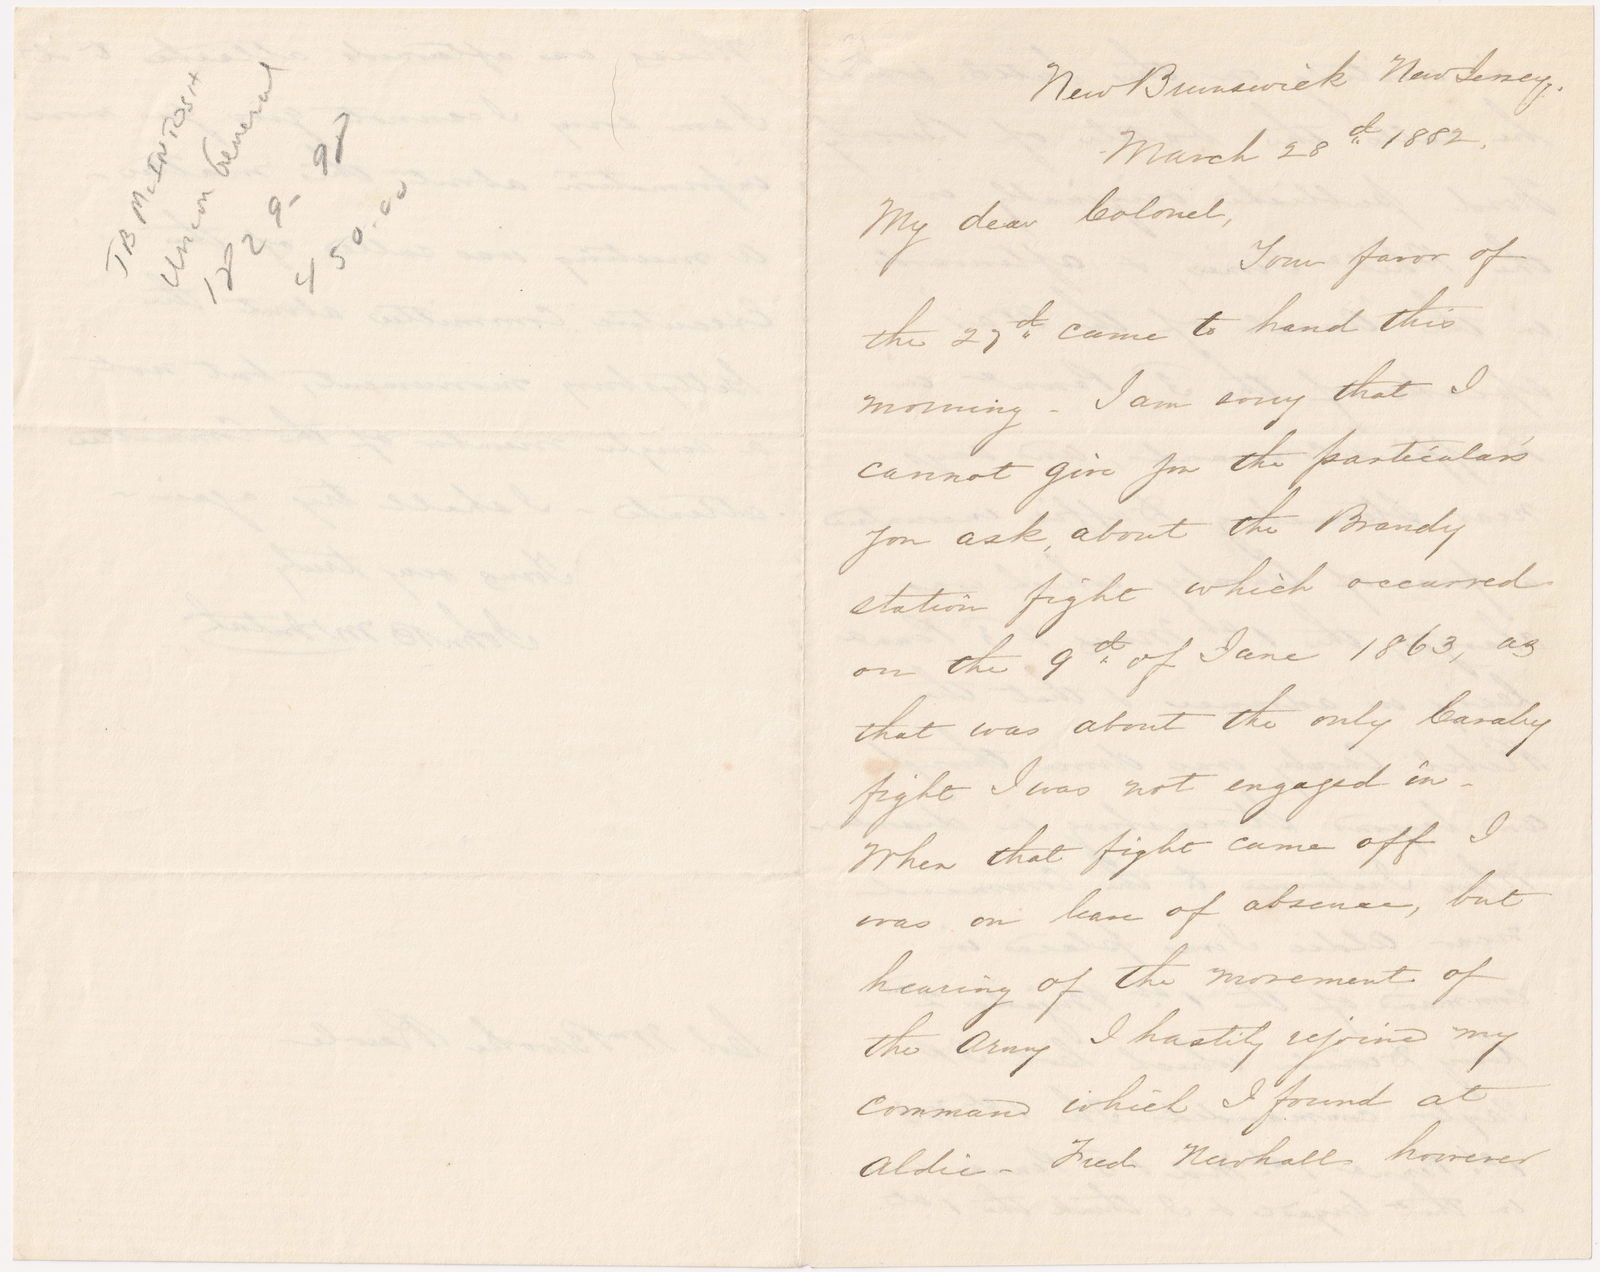 JB McINTOSH
Union General
1829-
450.00
New Brunswick New Jersey.
March 28th 1882.
My dear Colonel,
Your favor of
the 27th came to hand this
morning - I am sorry that I
cannot give you the particulars
you ask, about the Brandy
station fight which occurred
on the 9th of June 1863, as
that was about the only Cavalry
fight I was not engaged in -
When that fight came off I
was on leave of absence, but
hearing of the movement of
the Army I hastily rejoined my
command which I found at
Aldie - Fred Newhall however